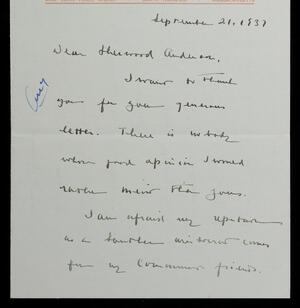 September 21, 1937
Dear Sherwood Anderson,
I want to thank
you for your generous
letter. There is nobody
whose good opinion I would
rather merit than yours.
I am afraid my
as a Southern comes
from my Communist friends.